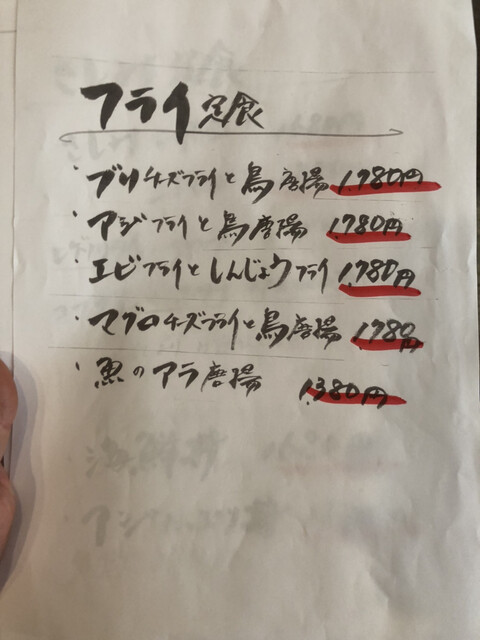 フライ定食
・ブリチーズフライと鳥唐揚 1,780円
・アジフライと鳥唐揚 1,780円
・エビフライとしんじょうフライ 1,780円
・マグロチーズフライと鳥唐揚 1,780円
・魚のアラ唐揚 1,380円